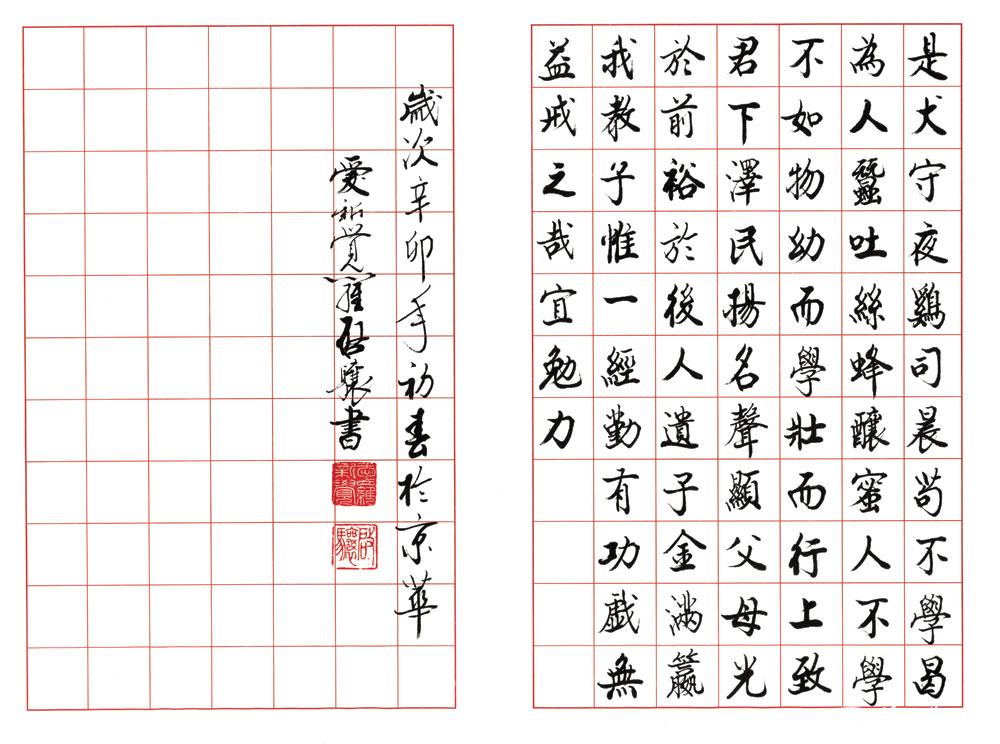 是犬守夜鷄司晨苟不學曷
為人蠶吐絲蜂釀蜜人不學
不如物幼而學壯而行上致
君下澤民揚名聲顯父母光
於前裕於後人遺子金滿籯
我教子惟一經勤有功戲無
益戒之哉宜勉力
歲次辛卯年初春於京華
愛新覺羅啟驤書
愛新覺羅
啟驤